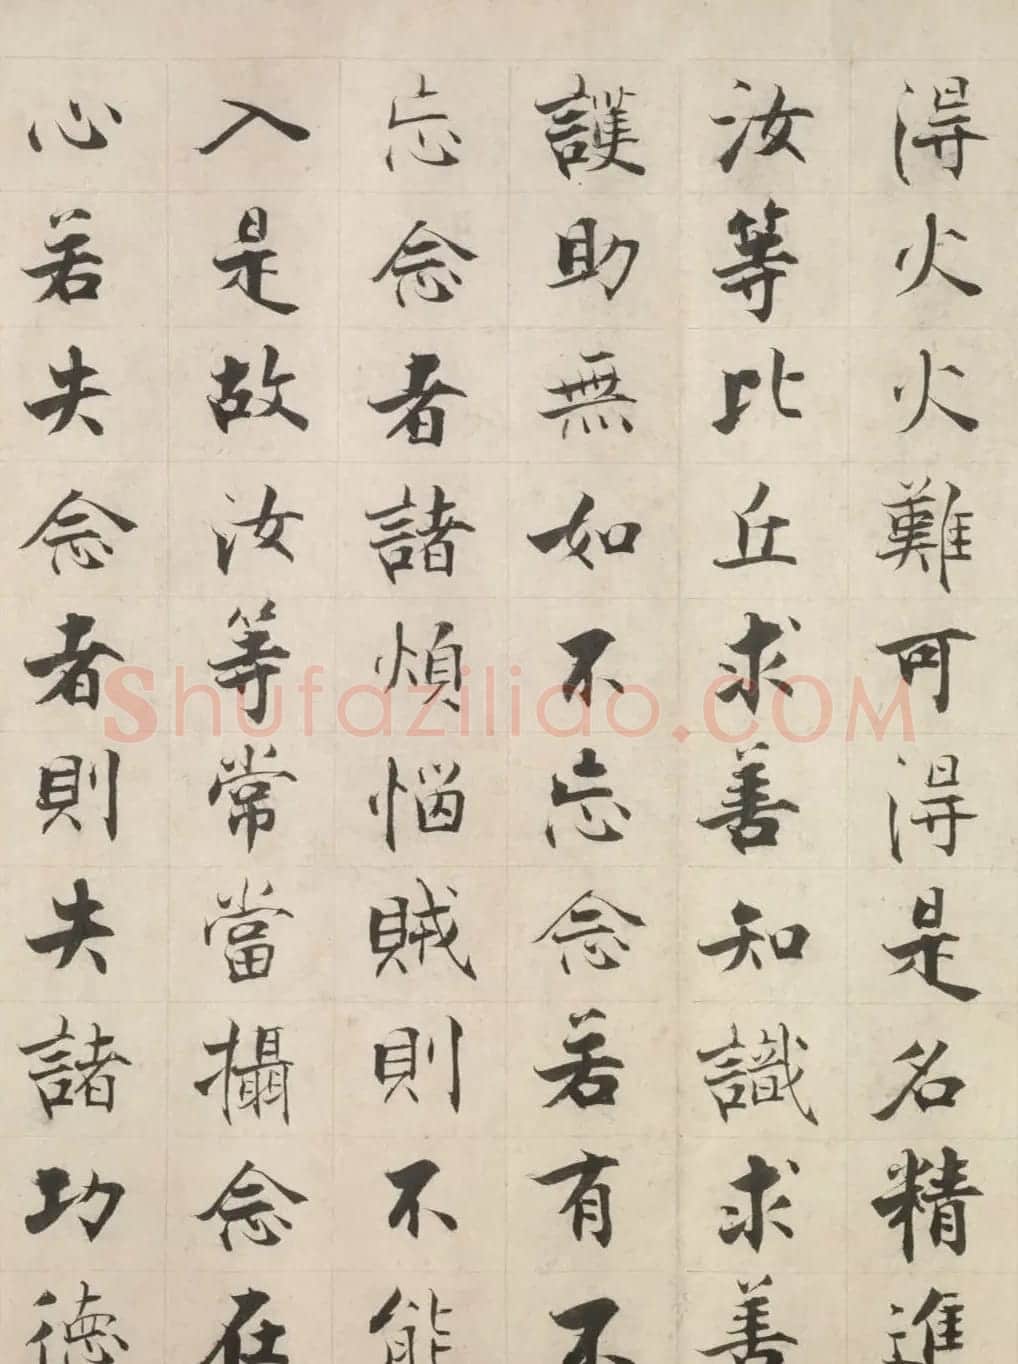 得火火難可得是名精進
汝等比丘求善知識求善
護助無如不忘念若有不
忘念者諸煩惱賊則不能
入是故汝等常當攝念在
心若失念者則失諸功德
Shufaziliao.COM